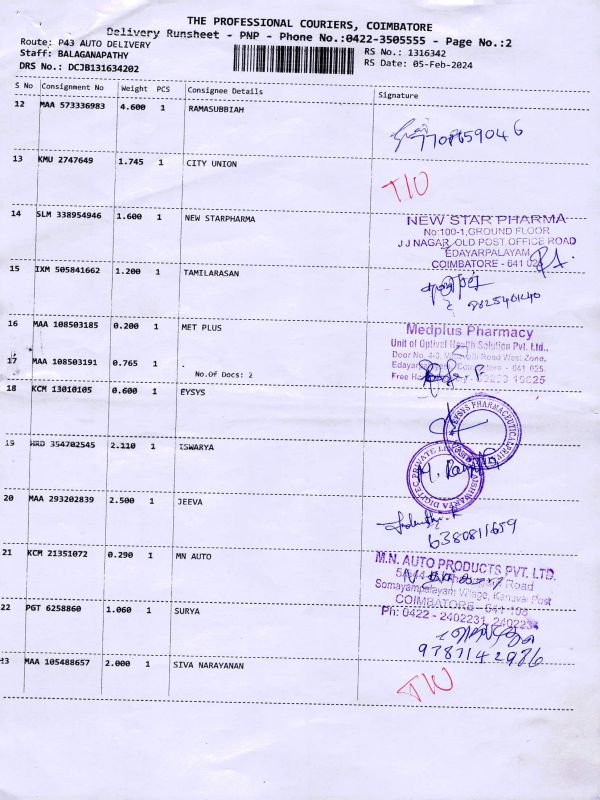 THE PROFESSIONAL COURIERS, COIMBATORE
Delivery Runsheet - PNP - Phone No.:0422-3505555 - Page No.:2
Route: P43 AUTO DELIVERY
RS No.: 1316342
Staff: BALAGANAPATHY
RS Date: 05-Feb-2024
DRS No.: DCJB131634202
S No Consignment No Weight PCS Consignee Details Signature
12 MAA 573336983 4.600 1 RAMASUBBIAH
7708659046
13 KMU 2747649 1.745 1 CITY UNION
14 SLM 338954946 1.600 1 NEW STARPHARMA
NEW STAR PHARMA
No:100-1,GROUND FLOOR
J J NAGAR, OLD POST OFFICE ROAD
EDAYARPALAYAM,
COIMBATORE - 641 025
15 IXM 505841662 1.200 1 TAMILARASAN
16 MAA 108503185 0.200 1 MET PLUS
Medplus Pharmacy
Unit of Optival Health Solution Pvt. Ltd.,
Road West Zone,
641 025.
17 MAA 108503191 0.765 1 .
No.Of Docs: 2
18 KCM 13010105 0.600 1 EYSYS
EYSYS PHARMACEUTICAL
19 HRD 354702545 2.110 1 ISWARYA
PRIVATE
20 MAA 293202839 2.500 1 JEEVA
6380811659
21 KCM 21351072 0.290 1 MN AUTO
M.N. AUTO PRODUCTS PVT. LTD.
Road
Somayampalayam Village, Kanuvai Post
COIMBATORE - 641 108
Ph: 0422 - 2402231,
22 PGT 6258860 1.060 1 SURYA
9787142976
23 MAA 105488657 2.000 1 SIVA NARAYANAN